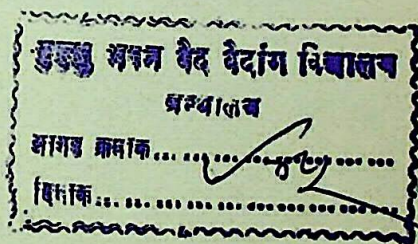 मुमुक्षु भवन वेद वेदांग विद्यालय
ग्रन्थालय
आगत क्रमांक... ... ... ... ...
दिनांक... ... ... ... ... ...